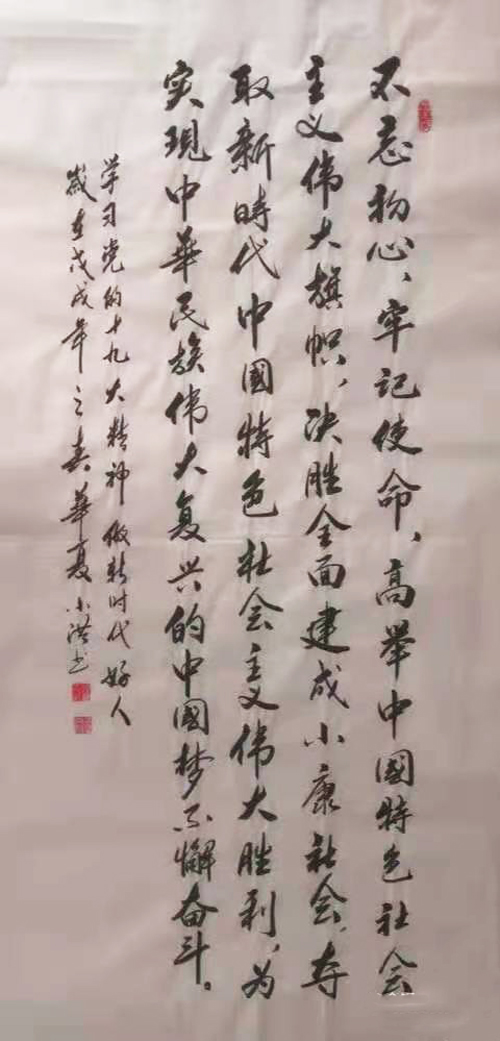 不忘初心、牢记使命、高举中国特色社会
主义伟大旗帜，决胜全面建成小康社会，夺
取新時代中国特色社会主义伟大胜利，为
实现中華民族伟大复兴的中国梦不懈奋斗。
学习党的十九大精神 做新时代好人
嵗在戊戌年之春華夏小洪书